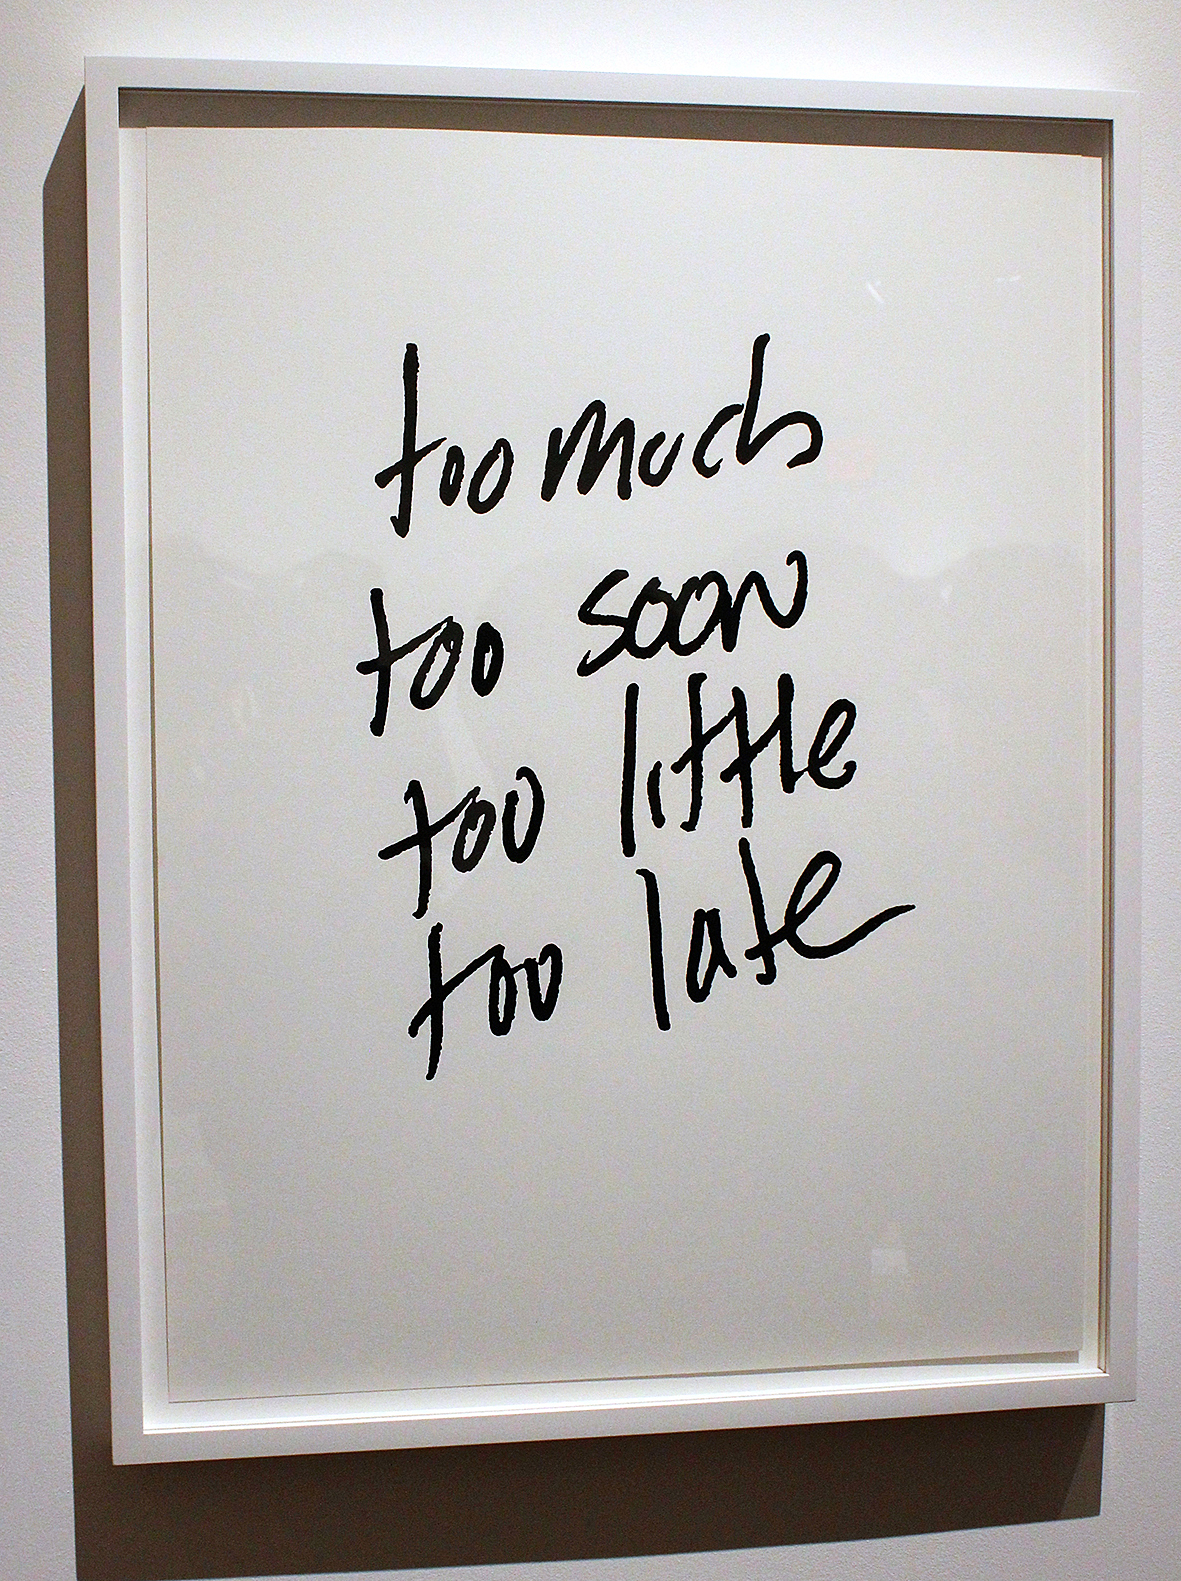 too much
too soon
too little
too late